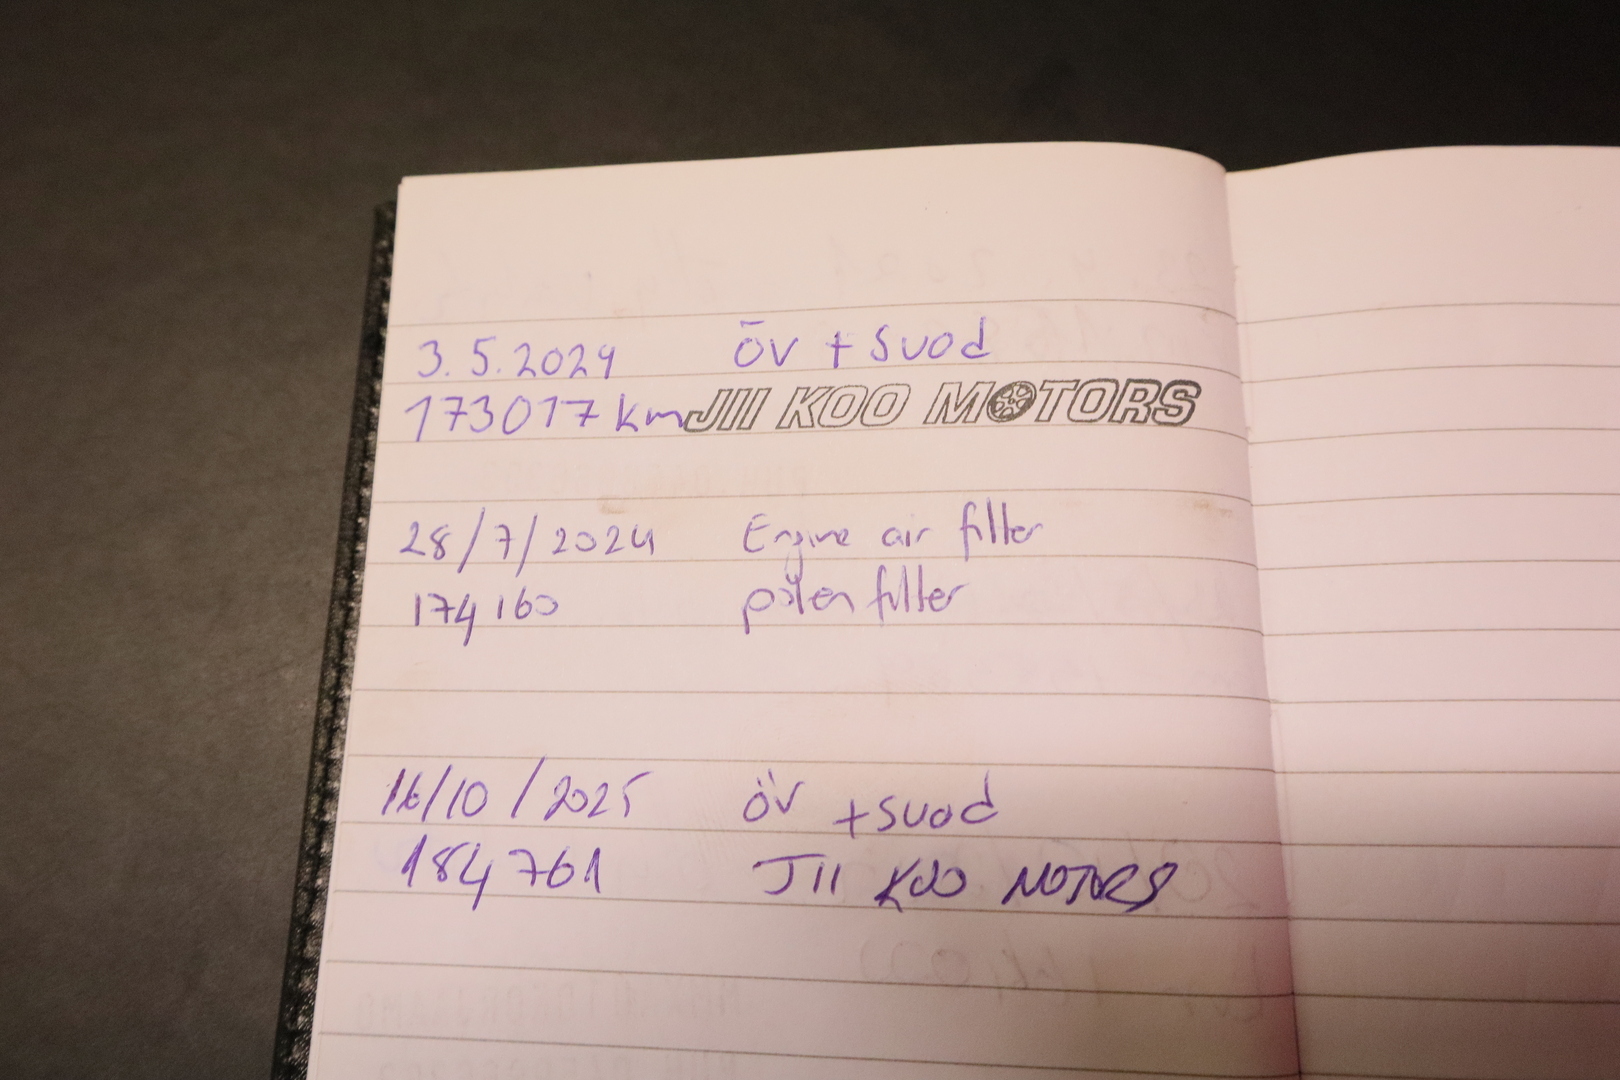 3.5.2024 ÖV + Suod
173017 km JII KOO MOTORS
28/7/2024 Engine air filter
174160 polen filter
16/10/2025 ÖV + suod
184761 JII KOO MOTORS